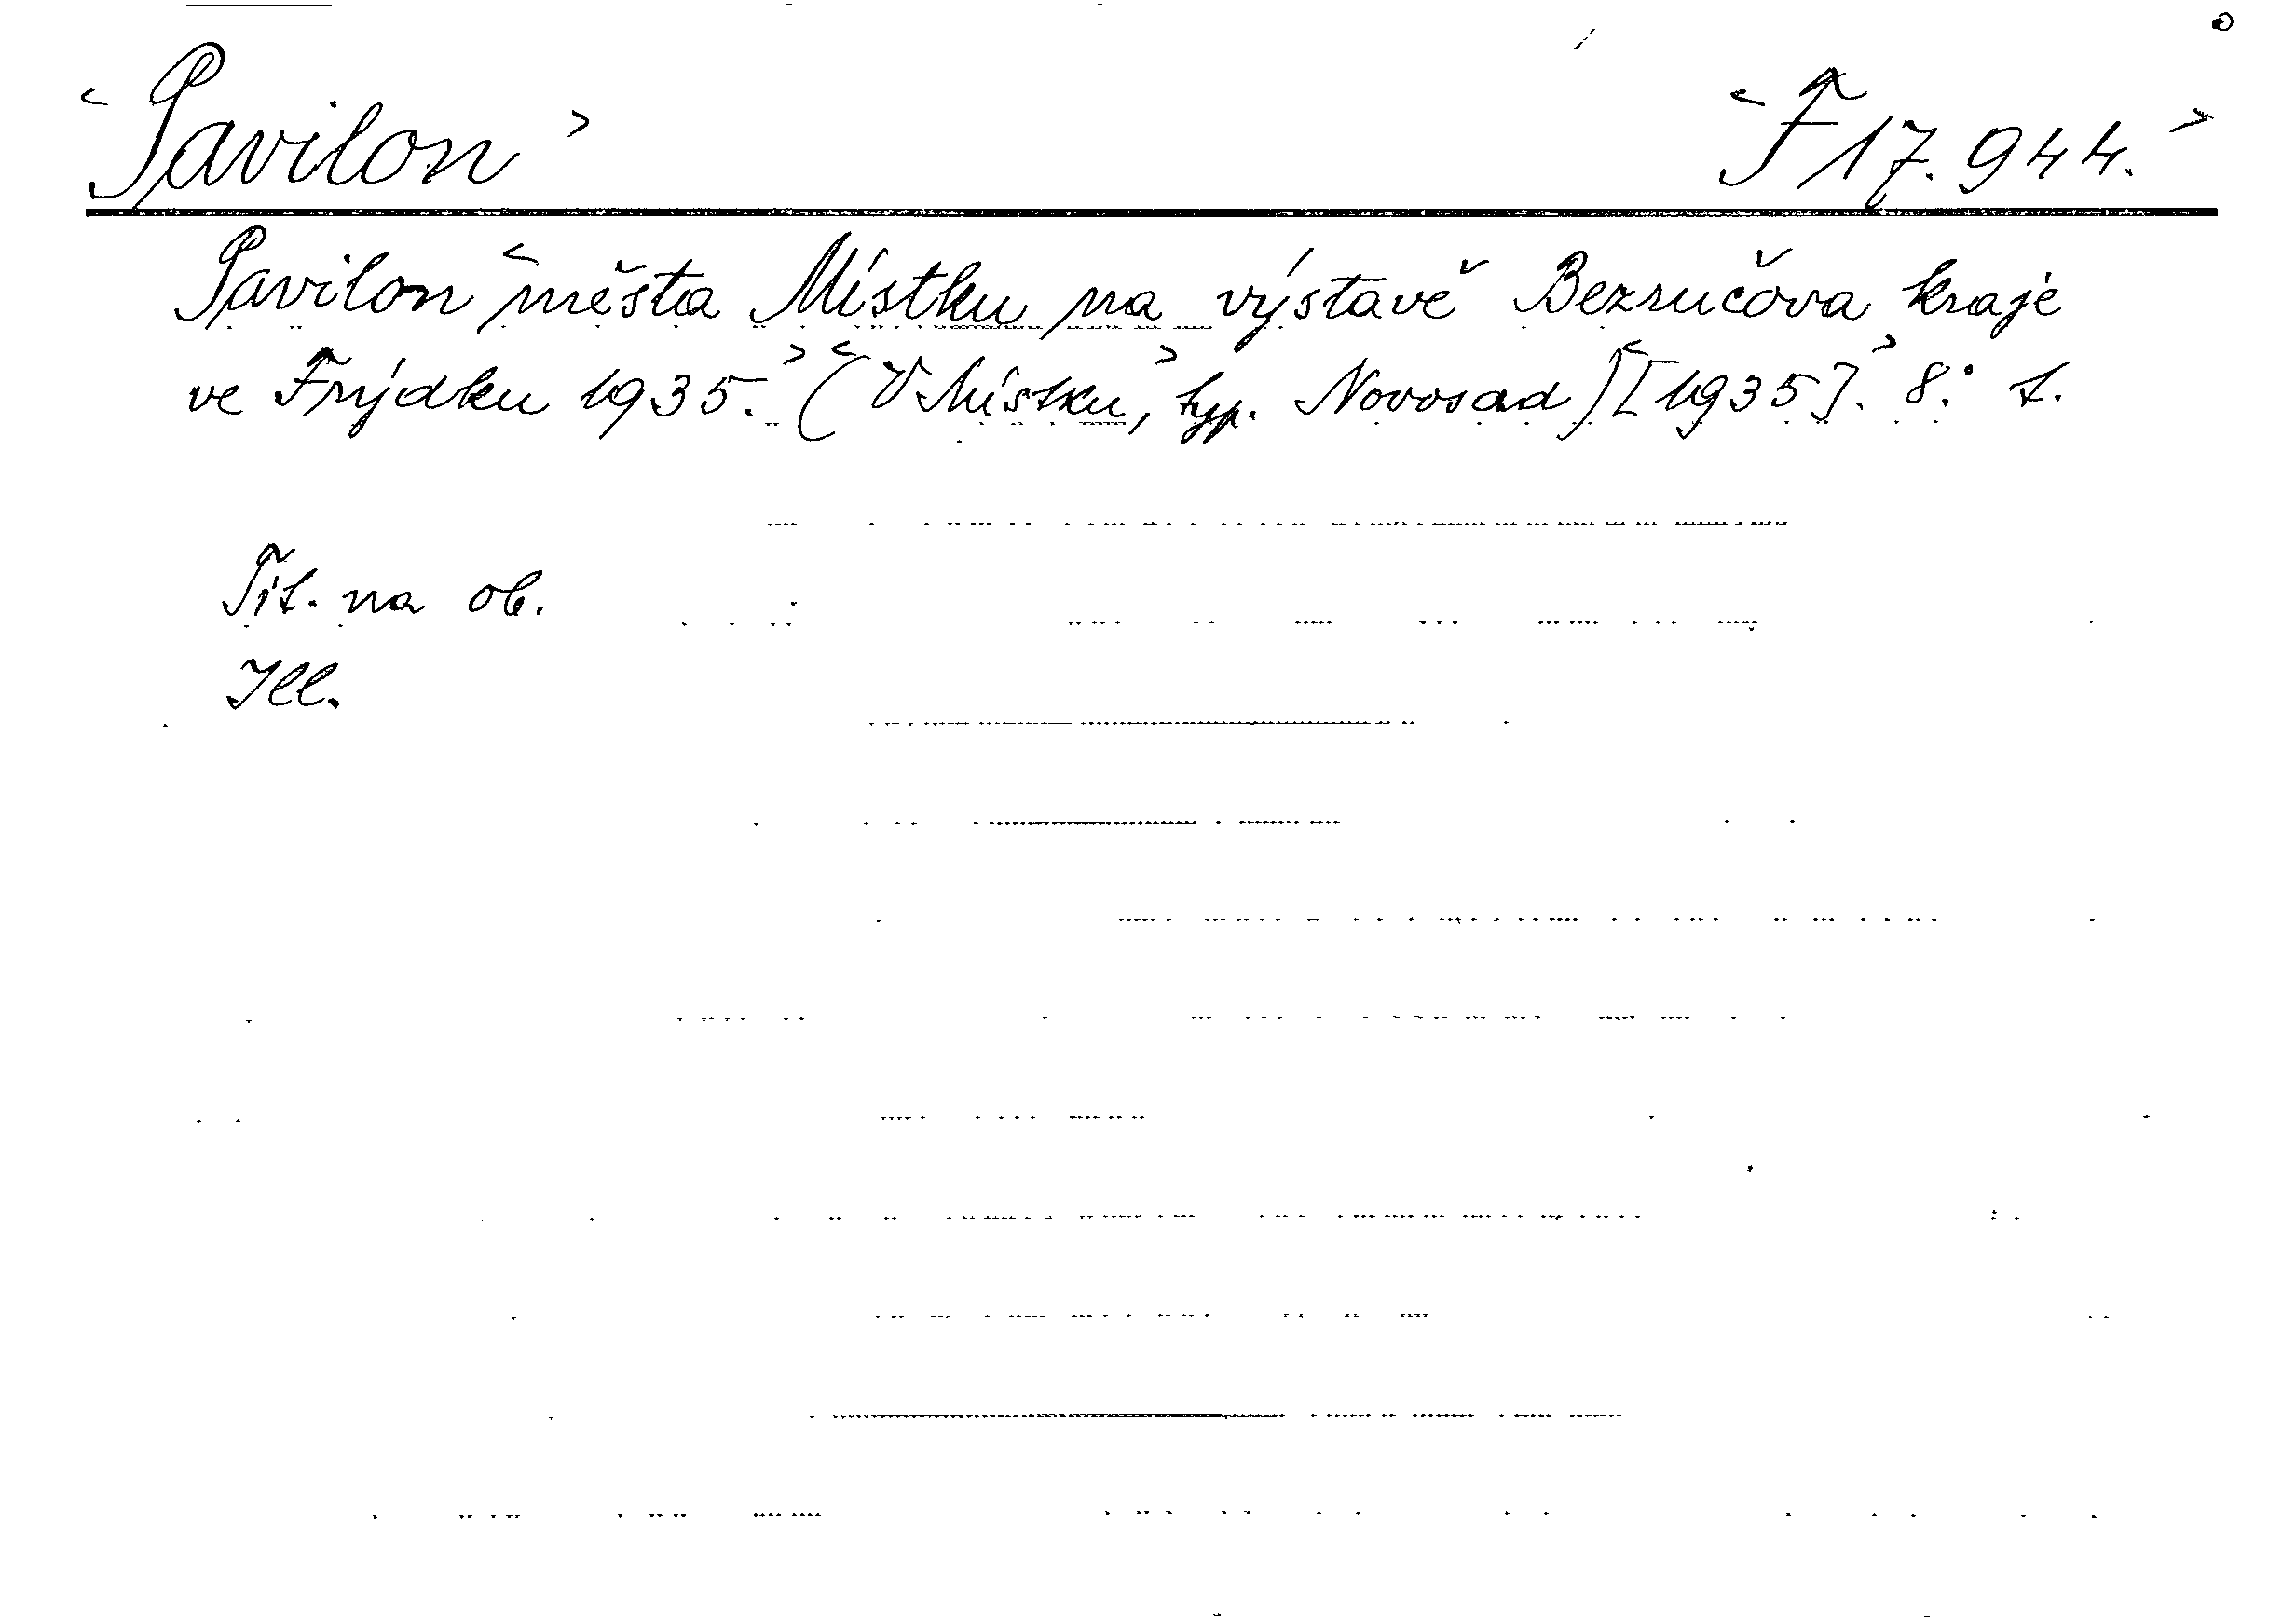 < Pavilon > < F 17.944. >
Pavilon < města Místku na výstavě Bezručova kraje
ve Frýdku 1935. > < (V Místku, > typ. Novosad) < [1935]. > 8° t.
Tit. na ob.
Ill.